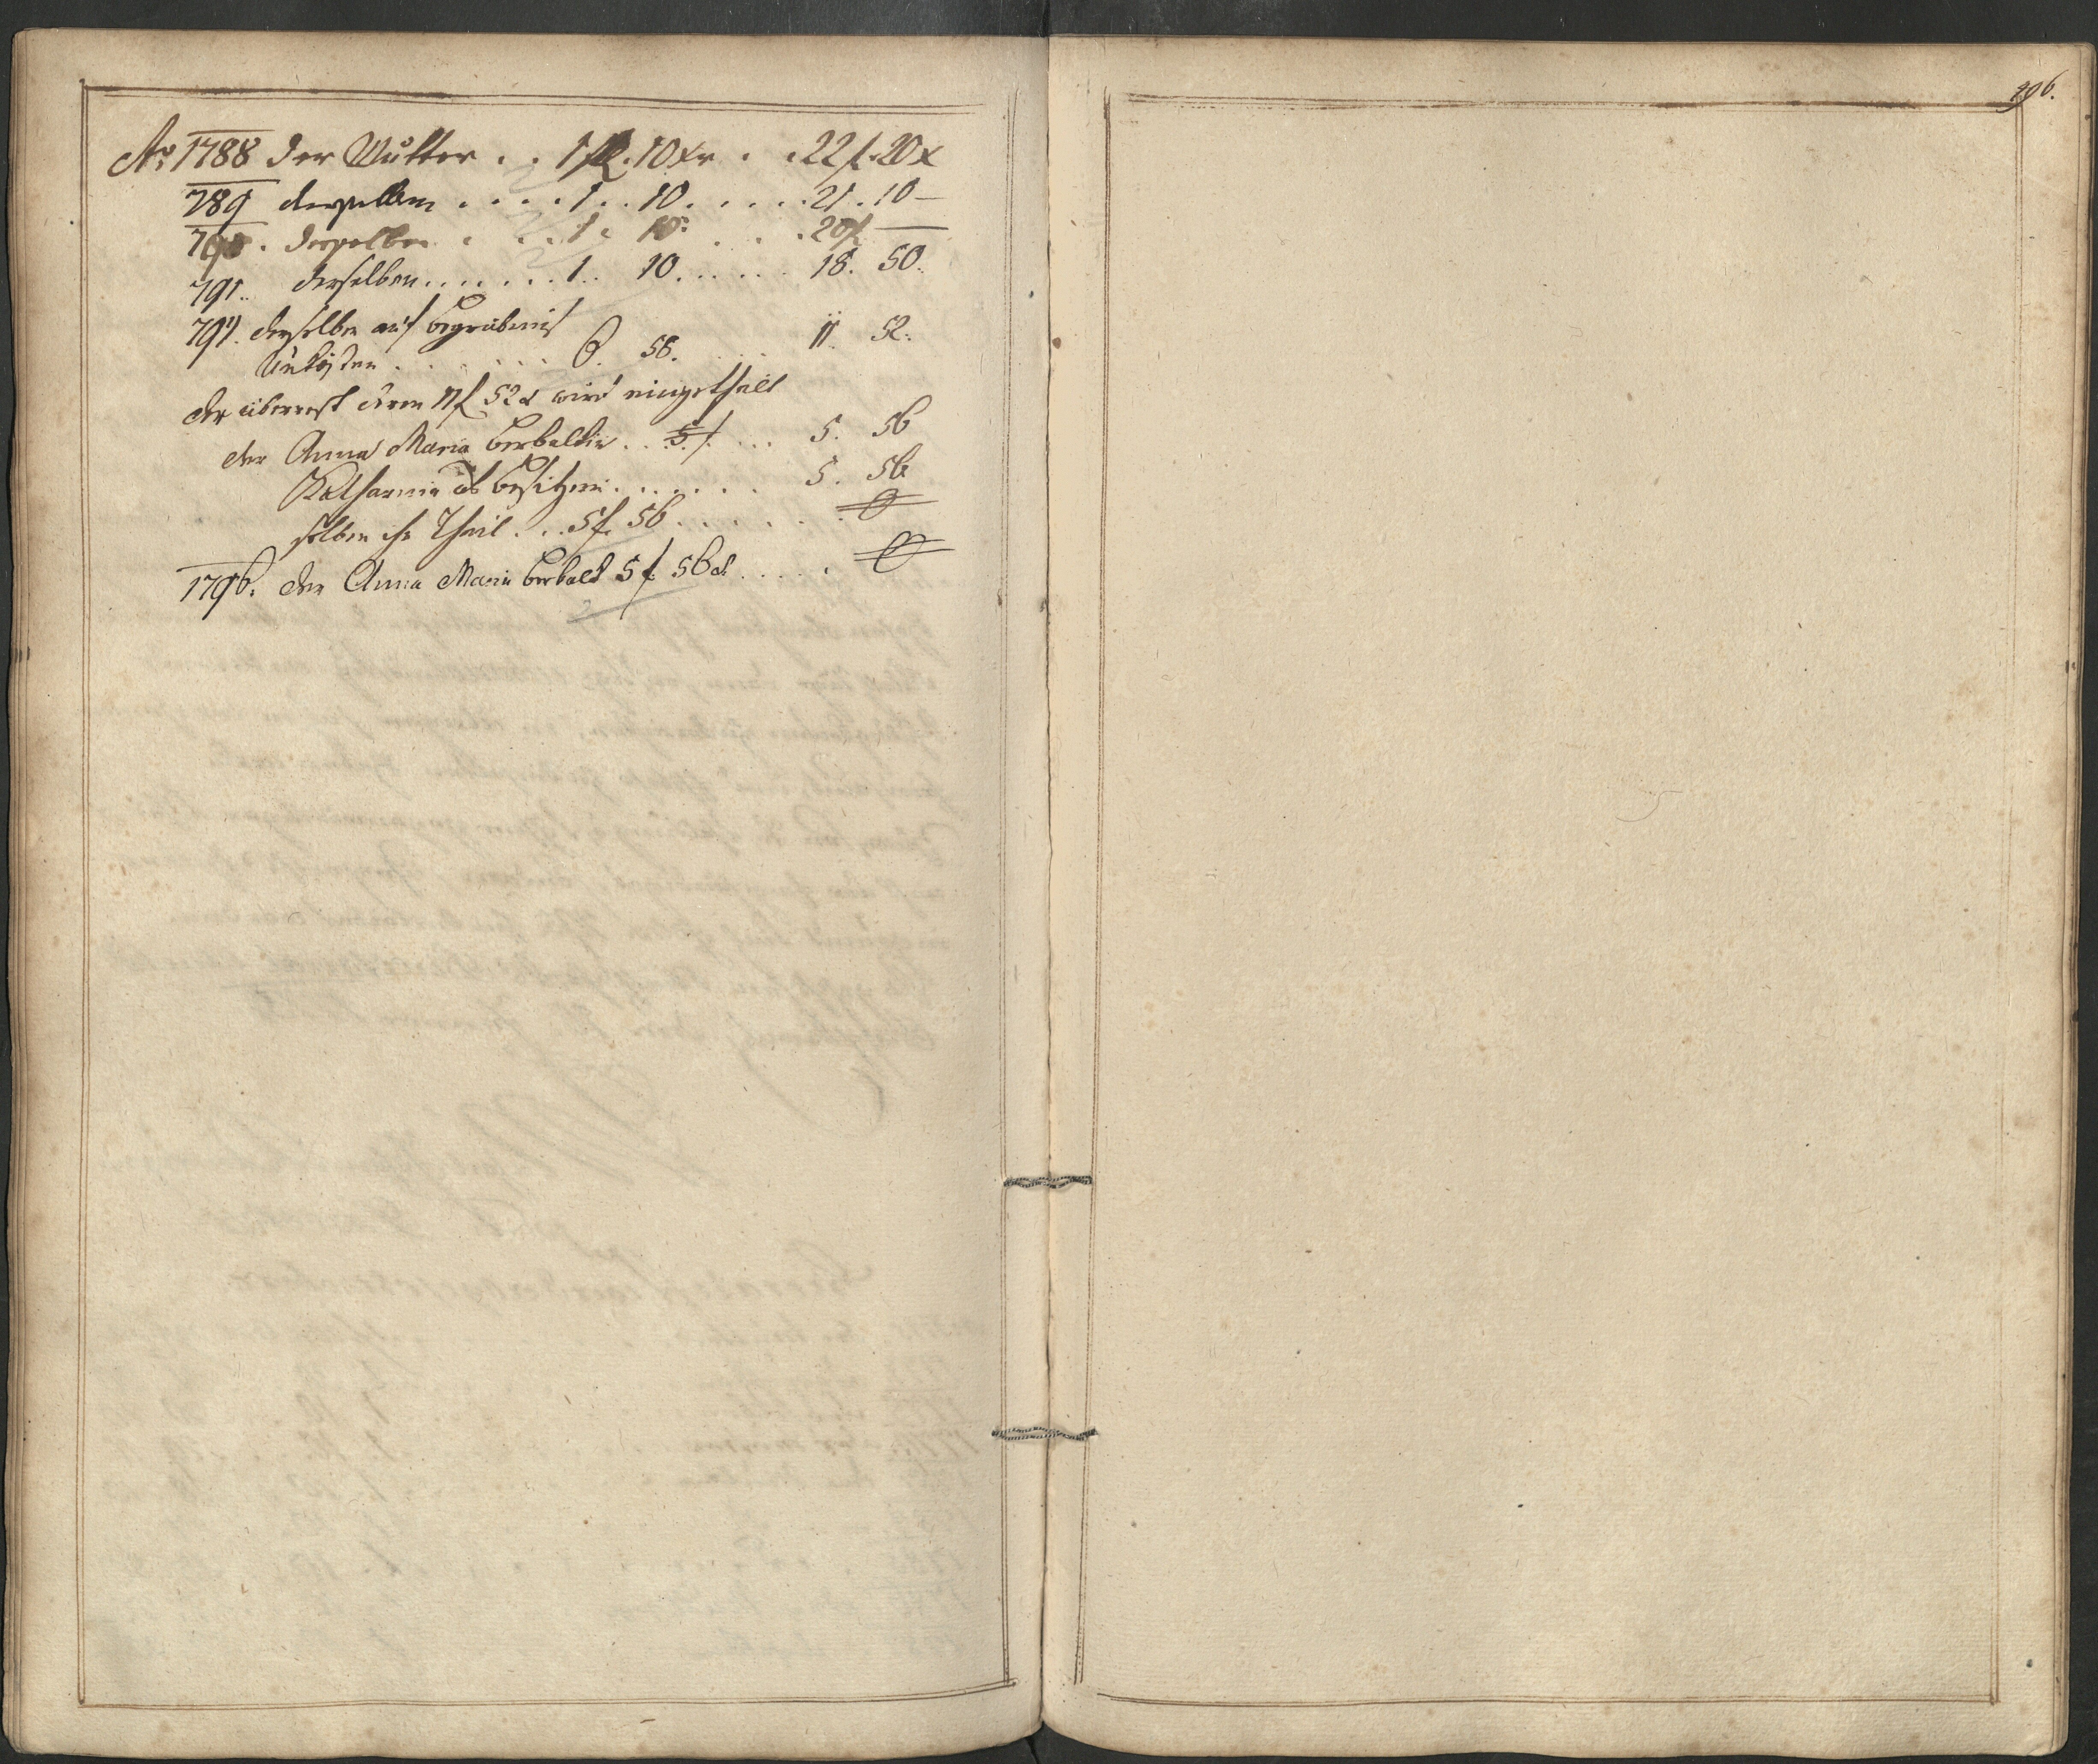 496.
Ao 1788 der Mutter . . 1 fl. 10 xr . . 22 f. 20 x
789 derselben . . . . 1 . . 10 . . . . . 21 . 10 —
790 . derselben . . . 1 . 10 . . . . 20 f —
791 .. derselben . . . . . . . 1 .. 10 . . . . . . 18 . 50 .
derselben auf begräbnis
Unkösten . . . . . . 6 . 58 . . . . 11 . 52 .
der überrest deren 11 f 52 x wird eingetheilt
der Anna Maria . . 5 f . . . . 5 . 56
Katharina als besitzerin . . . . . . 5 . 56
selben ihr Theil . . . 5 f. 56 . . . . . . 0
1796 . der Anna Maria 5 f. 56 x . . . . . 0